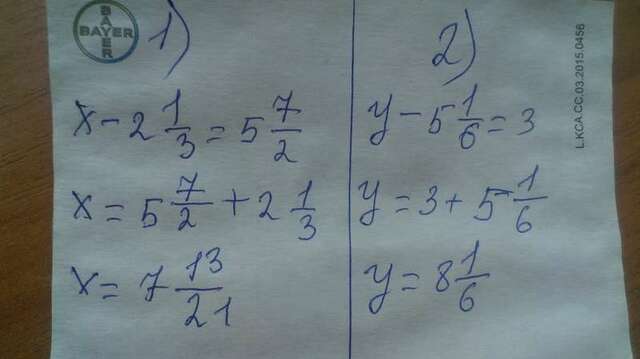 BAYER
BAYER
1)
x - 2 1/3 = 5 7/2
x = 5 7/2 + 2 1/3
x = 7 13/21
2)
y - 5 1/6 = 3
y = 3 + 5 1/6
y = 8 1/6
L.KCA.CC.03.2015.0456